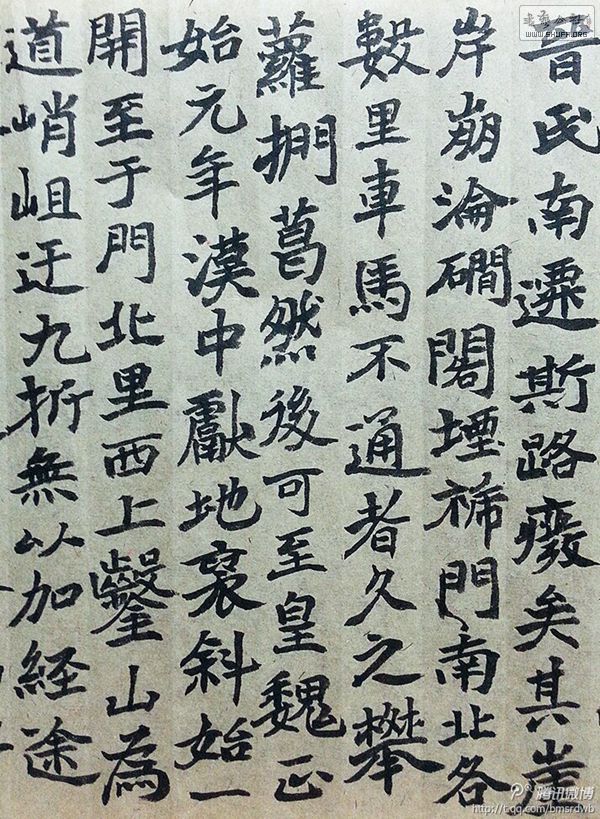 晉氏南遷斯路癈矣其崖
岸崩淪磵閣堙褫門南北各
數里車馬不通者久之攀
蘿捫葛然後可至皇魏正
始元年漢中獻地褒斜始一
開至于門北里西上鑿山為
道峭岨迂九折無以加経途
WWW.SHUFA.ORG
腾讯微博
http://t.qq.com/bmsrdwb